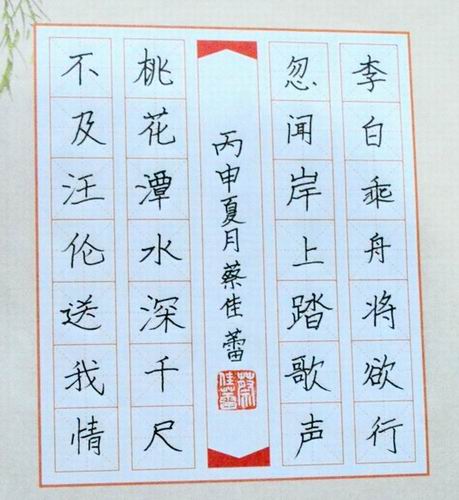 李白乘舟将欲行
忽闻岸上踏歌声
丙申夏月蔡佳蕾
蔡佳蕾
桃花潭水深千尺
不及汪伦送我情